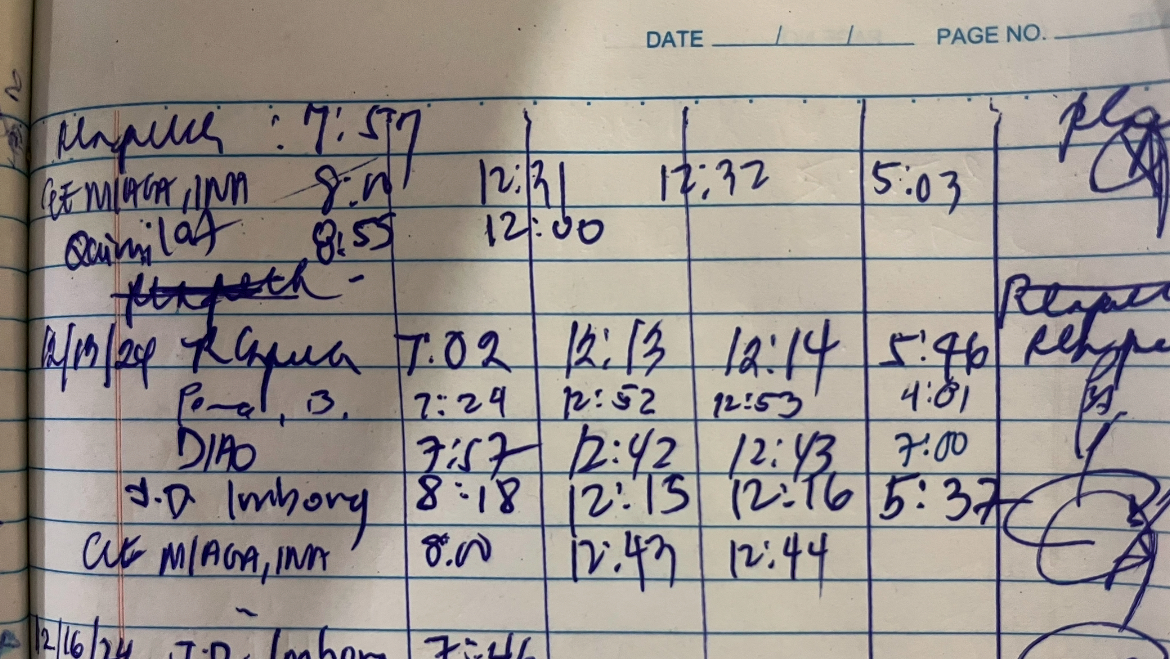 DATE / / PAGE NO.
: 7:57
MIAGA, INA 8:00 12:31 12:32 5:03
Quimilat 8:55 12:00
12/13/24 7:02 12:13 12:14 5:46
, B. 7:29 12:52 12:53 4:01
DIAO 7:57 12:42 12:43 7:00
J.D. Imbong 8:18 12:15 12:16 5:37
MIAGA, INA 8:00 12:43 12:44
12/16/24 J.D. Imbong 7:46